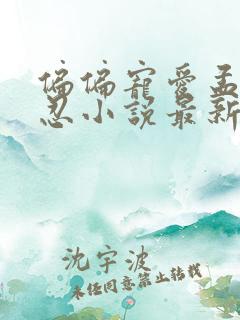 偏偏寵愛孟
忍小說最新
沈宇波
未经同意禁止转载